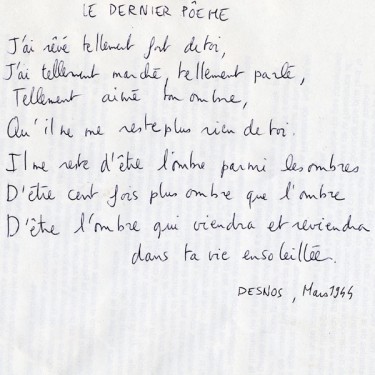 LE DERNIER PÔEME
J'ai rêvé tellement fort de toi,
J'ai tellement marché, tellement parlé,
Tellement aimé ton ombre,
Qu'il ne me reste plus rien de toi.
Il me reste d'être l'ombre parmi les ombres
D'être cent fois plus ombre que l'ombre
D'être l'ombre qui viendra et reviendra
dans ta vie ensoleillée.
DESNOS, Mars 1944